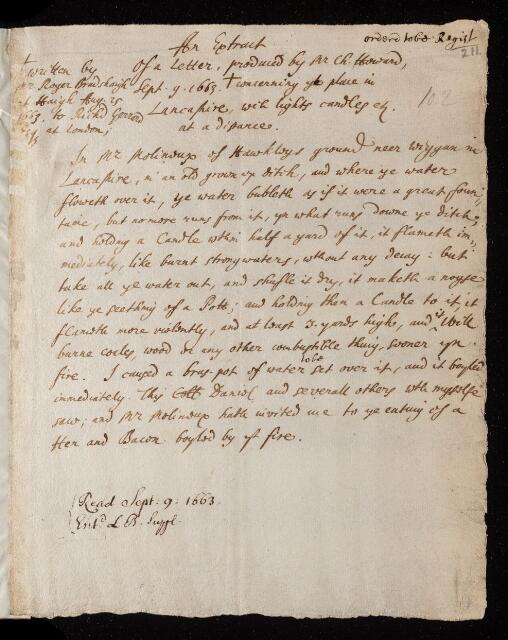 orderd to be Regist
211.
10.2
An Extract
of a Letter, produced by Mr Ch: Howard,
Sept. 9. 1663. † concerning ye place in
Lancashire, wch lights candles etc.
at a distance.
† written by
Roger Bradshaigh
Haigh Aug. 15
1663. to Richd
at London;
In Mr Molinoux of Hawkleys ground neer wiggan in
Lancashire, in an old grown up ditch, and where ye water
floweth over it, ye water bubleth as if it were a great foun-
taine, but no more runs from it, yn what runs downe ye ditch;
and holding a Candle wthin half a yard of it, it flameth im-
mediately, like burnt strongwaters, without any decay: but
take all ye water out, and shufle it dry, it maketh a noyse
like ye seething of a Pott; and holding then a Candle to it it
flameth more violently, and at least 3. yards high, and it will
burne coales, wood or any other combustible thing, sooner yn
fire. I caused a bras-pot of water to be set over it, and it boyled
immediately. This Coll: Daniel and severall others wth myselfe
saw; and Mr Molinoux hath invited me to ye eating of a
Hen and Bacon boyled by yt fire.
Read Sept. 9: 1663.
Entd L. B. Suppl.